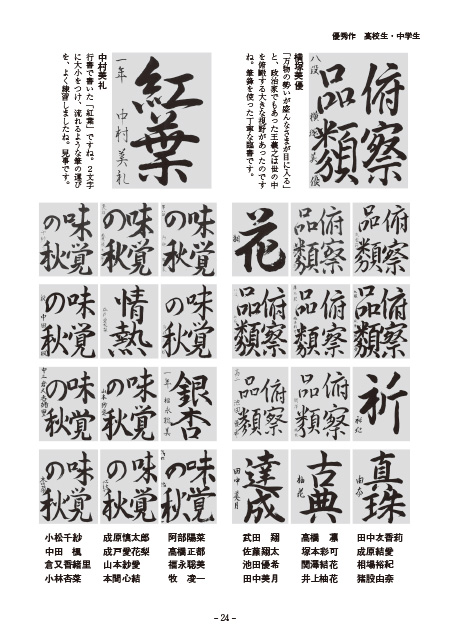 優秀作　高校生・中学生
俯察
品類
八段　横塚美優
横塚美優
「万物の勢いが盛んなさまが目に入る」
と、政治家でもあった王羲之は世の中
を俯瞰する大きな視野があったのです
ね。筆鋒を使った丁寧な臨書です。
紅葉
一年　中村美礼
中村美礼
行書で書いた「紅葉」ですね。２文字
に大小をつけ、流れるような筆の運び
を、よく練習しましたね。見事です。
俯察
品類
俯察
品類
花
翔
俯察
品類
俯察
品類
俯察
品類
祈
裕紀
俯察
品類
俯察
品類
真珠
由奈
古典
柚花
達成
田中美月
味覚
の秋
味覚
の秋
味覚
の秋
味覚
の秋
情熱
味覚
の秋
中田楓
銀杏
一年　福永聡美
味覚
の秋
山本紗愛
味覚
の秋
味覚
の秋
味覚
の秋
味覚
の秋
田中友香莉
成原結愛
相場裕紀
猪股由奈
高橋　凜
塚本彩可
関澤結花
井上柚花
武田　翔
佐藤翔太
池田優希
田中美月
阿部陽菜
高橋正都
福永聡美
牧　凌一
成原慎太郎
成戸愛花梨
山本紗愛
本間心結
小松千紗
中田　楓
倉又香緒里
小林杏菜
– 24 –